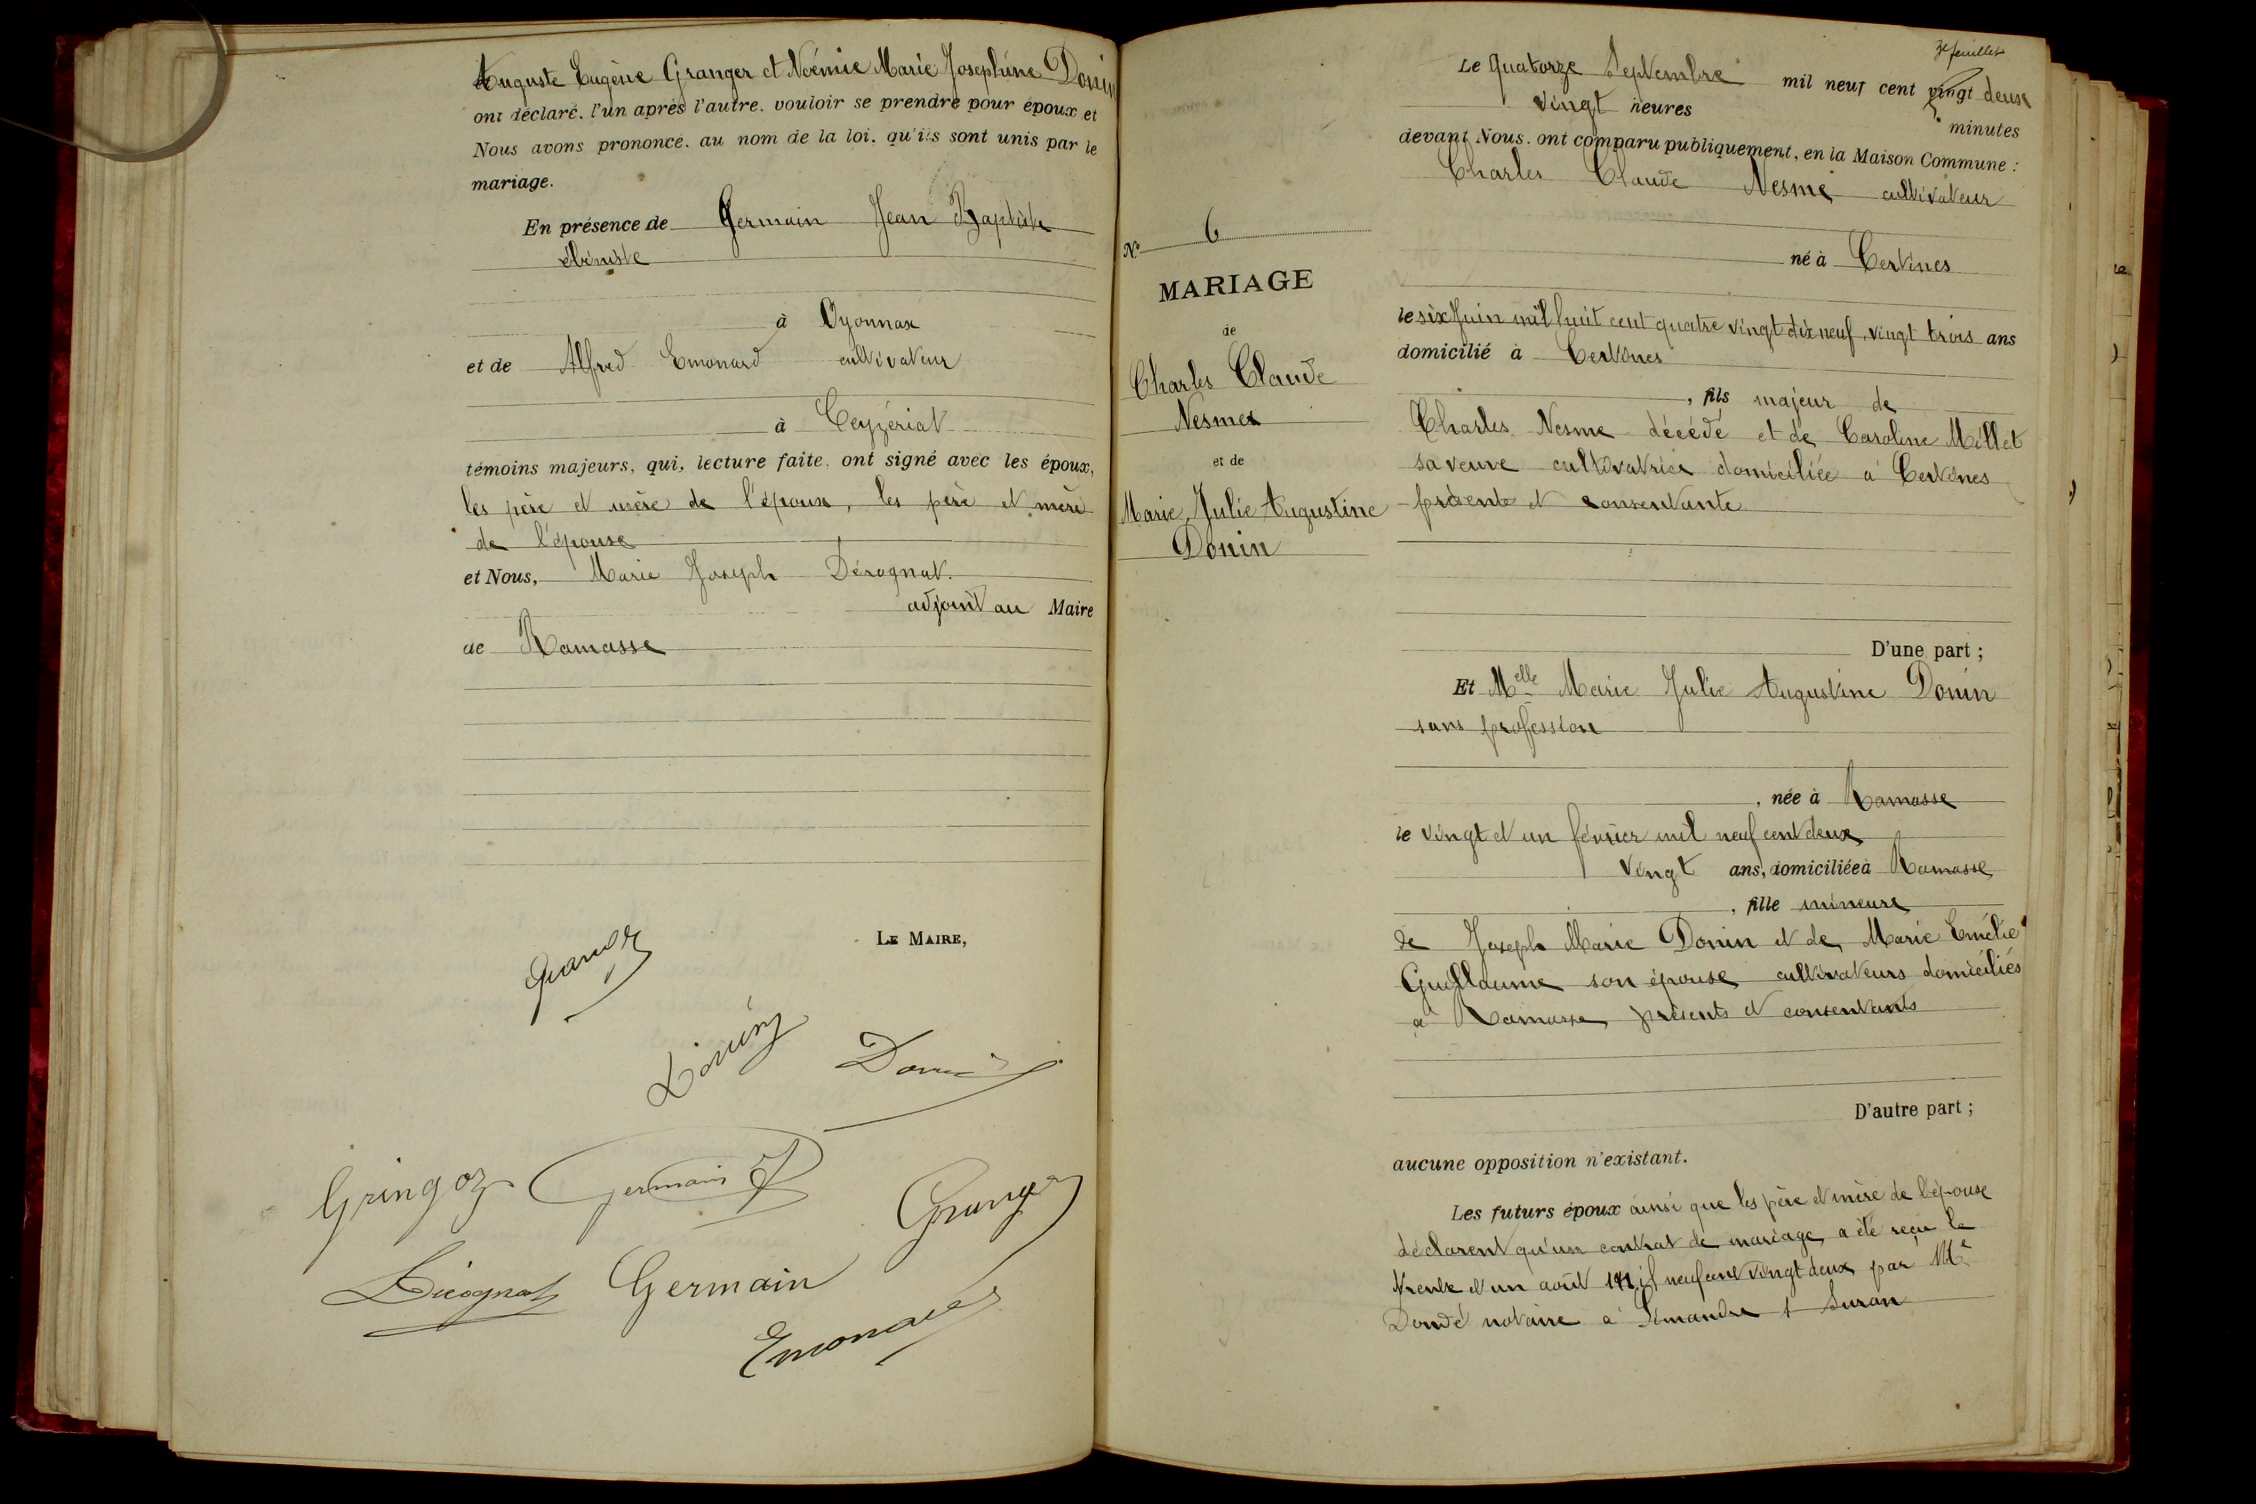 Auguste Eugène Granger et Noémie Marie Josephine Donin
ont déclaré, l'un après l'autre, vouloir se prendre pour époux et
Nous avons prononcé, au nom de la loi, qu'ils sont unis par le
mariage.
En présence de Germain Jean Baptiste
ébéniste
à Oyonnax
et de Alfred Emonard cultivateur
à Ceyzériat
témoins majeurs, qui, lecture faite, ont signé avec les époux,
les père et mère de l'époux, les père et mère
de l'épouse
et Nous, Marie Joseph Dérognat.
adjoint au Maire
de Ramasse
LE MAIRE,
Granger
Donin
Donin
Gringoz
Germain
Granger
Dérognat
Germain
Emonard
3e feuillet
Le quatorze Septembre mil neuf cent vingt deux
vingt heures minutes
devant Nous, ont comparu publiquement, en la Maison Commune :
Charles Claude Nesme cultivateur
né à Certines
le six Juin mil huit cent quatre vingt dix neuf, vingt trois ans
domicilié à Certines
, fils majeur de
Charles Nesme décédé et de Caroline Millet
sa veuve cultivatrice domiciliée à Certines
présente et consentante
D'une part ;
Et Melle Marie Julie Augustine Donin
sans profession
, née à Ramasse
le vingt et un février mil neuf cent deux
vingt ans, domiciliée à Ramasse
, fille mineure
de Joseph Marie Donin et de Marie Emélie
Guillaume son épouse cultivateurs domiciliés
à Ramasse présents et consentants
D'autre part ;
aucune opposition n'existant.
Les futurs époux ainsi que les père et mère de l'épouse
déclarent qu'un contrat de mariage a été reçu le
trente et un août mil neuf cent vingt deux par Me
Dondé notaire à Simandre s Suran
No 6
MARIAGE
de
Charles Claude
Nesme
et de
Marie Julie Augustine
Donin